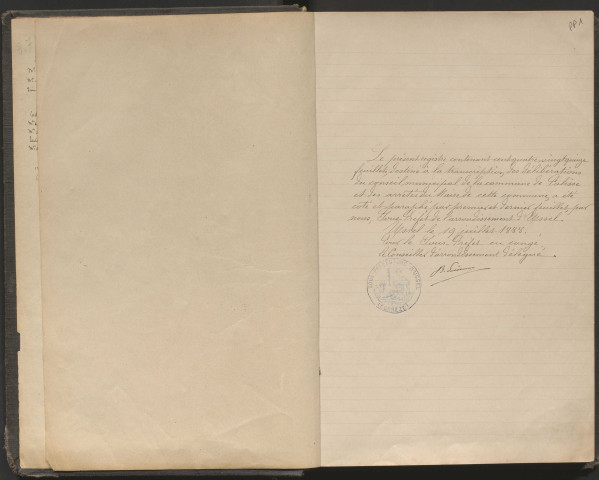 PP.1
Le présent registre contenant cent quatre vingt quinze
feuillets, destiné à la transcription, des délibérations
du conseil municipal de la commune de
et des arrêtés du Maire de cette commune, a été
coté et paraphé, par premier et dernier feuillets, par
nous, Sous-Préfet de l'arrondissement d'Ussel.
Ussel le 19 juillet 1888.
Pour le Sous-Préfet en congé
le Conseiller d'arrondissement délégué.